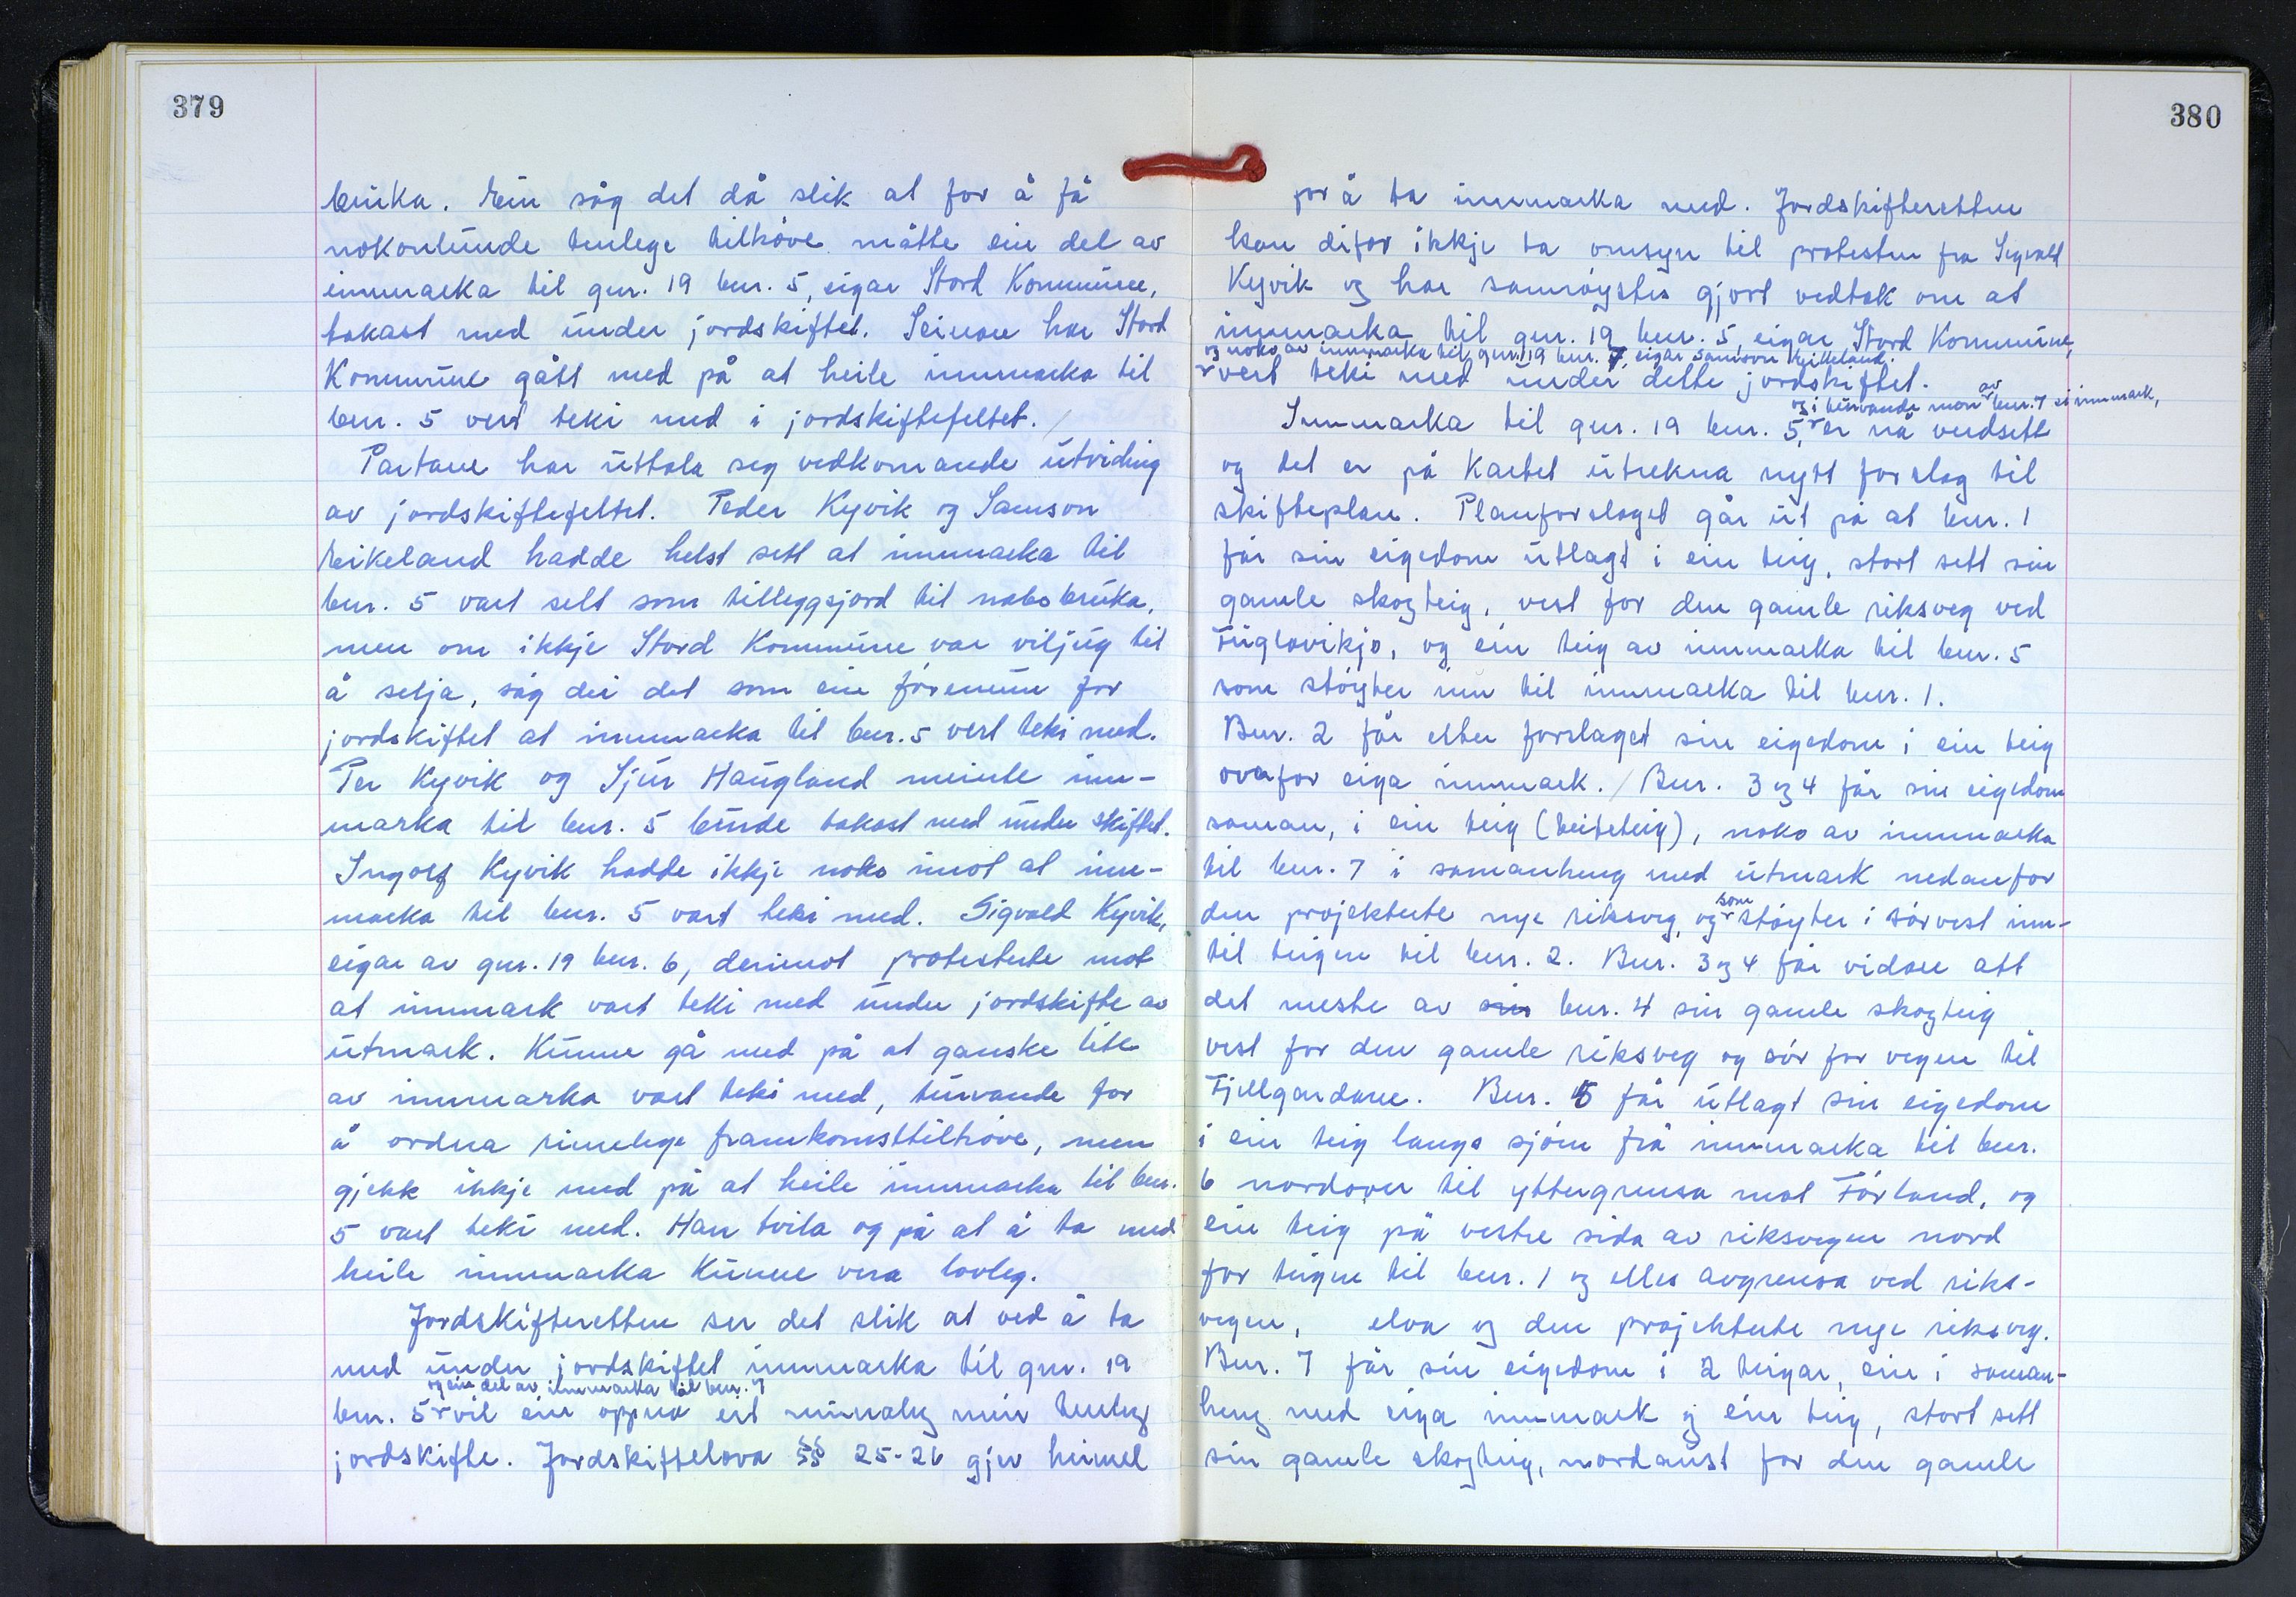 379
bruka. Ein såg det då slik at for å få
nokonlunde tenlege tilhøve måtte ein del av
innmarka til gnr. 19 bnr. 5, eigar Stord Kommune,
takast med under jordskiftet. Seinare har Stord
Kommune gått med på at heile innmarka til
bnr. 5 vert teki med i jordskiftefeltet.
Partane har uttala seg vedkomande utviding
av jordskiftefeltet. Peder Kyvik og Samson
Eikeland hadde helst sett at innmarka til
bnr. 5 vart selt som tilleggsjord til nabobruka,
men om ikkje Stord Kommune var viljug til
å selja, såg dei det som ein føremun for
jordskiftet at innmarka til bnr. 5 vert teki med.
Per Kyvik og Sjur Haugland meinte inn-
marka til bnr. 5 burde takast med under skiftet.
Ingolf Kyvik hadde ikkje noko imot at inn-
marka til bnr. 5 vart teki med. Sigvald Kyvik,
eigar av gnr. 19 bnr. 6, derimot protesterte mot
at innmark vart teki med under jordskifte av
utmark. Kunne gå med på at ganske lite
av innmarka vart teki med, turvande for
å ordna rimelege framkomsttilhøve, men
gjekk ikkje med på at heile innmarka til bnr.
5 vart teki med. Han tvila og på at å ta med
heile innmarka kunne vera lovleg.
Jordskifteretten ser det slik at ved å ta
med under jordskiftet innmarka til gnr. 19
og ein del av innmarka til bnr. 7
bnr. 5 vil ein oppnå eit monaleg meir tenleg
jordskifte. Jordskiftelova §§ 25-26 gjev heimel
380
for å ta innmarka med. Jordskifteretten
kan difor ikkje ta omsyn til protesten fra Sigvald
Kyvik og har samrøystes gjort vedtak om at
innmarka til gnr. 19 bnr. 5, eigar Stord Kommune,
og noko av innmarka til gnr. 19 bnr. 7, eigar Samson Eikeland.
vert teki med under dette jordskiftet.
og i turvande mon av bnr. 7 si innmark,
Innmarka til gnr. 19 bnr. 5, er nå verdsett
og det er på kartet utrekna nytt forslag til
skifteplan. Planforslaget går ut på at bnr. 1
får sin eigedom utlagt i ein teig, stort sett sin
gamle skogteig, vest for den gamle riksveg ved
Fuglavikjo, og ein teig av innmarka til bnr. 5
som støyter inn til innmarka til bnr. 1.
Bnr. 2 får etter forslaget sin eigedom i ein teig
ovafor eiga innmark. / Bnr. 3 og 4 får sin eigedom
saman, i ein teig (beiteteig), noko av innmarka
til bnr. 7 i samanheng med utmark nedanfor
den projekterte nye riksveg, og som støyter i sørvest inn-
til teigen til bnr. 2. Bnr. 3 og 4 får vidare att
det meste av sin bnr. 4 sin gamle skogteig
vest for den gamle riksveg og sør for vegen til
Fjellgardane. Bnr. 5 får utlagt sin eigedom
i ein teig langs sjøen frå innmarka til bnr.
6 nordover til yttergrensa mot Førland, og
ein teig på vestre sida av riksvegen nord
for teigen til bnr. 1 og elles avgrensa ved riks-
vegen, elva og den projekterte nye riksveg.
Bnr. 7 får sin eigedom i 2 teigar, ein i saman-
heng med eiga innmark og ein teig, stort sett
sin gamle skogteig, nordaust for den gamle